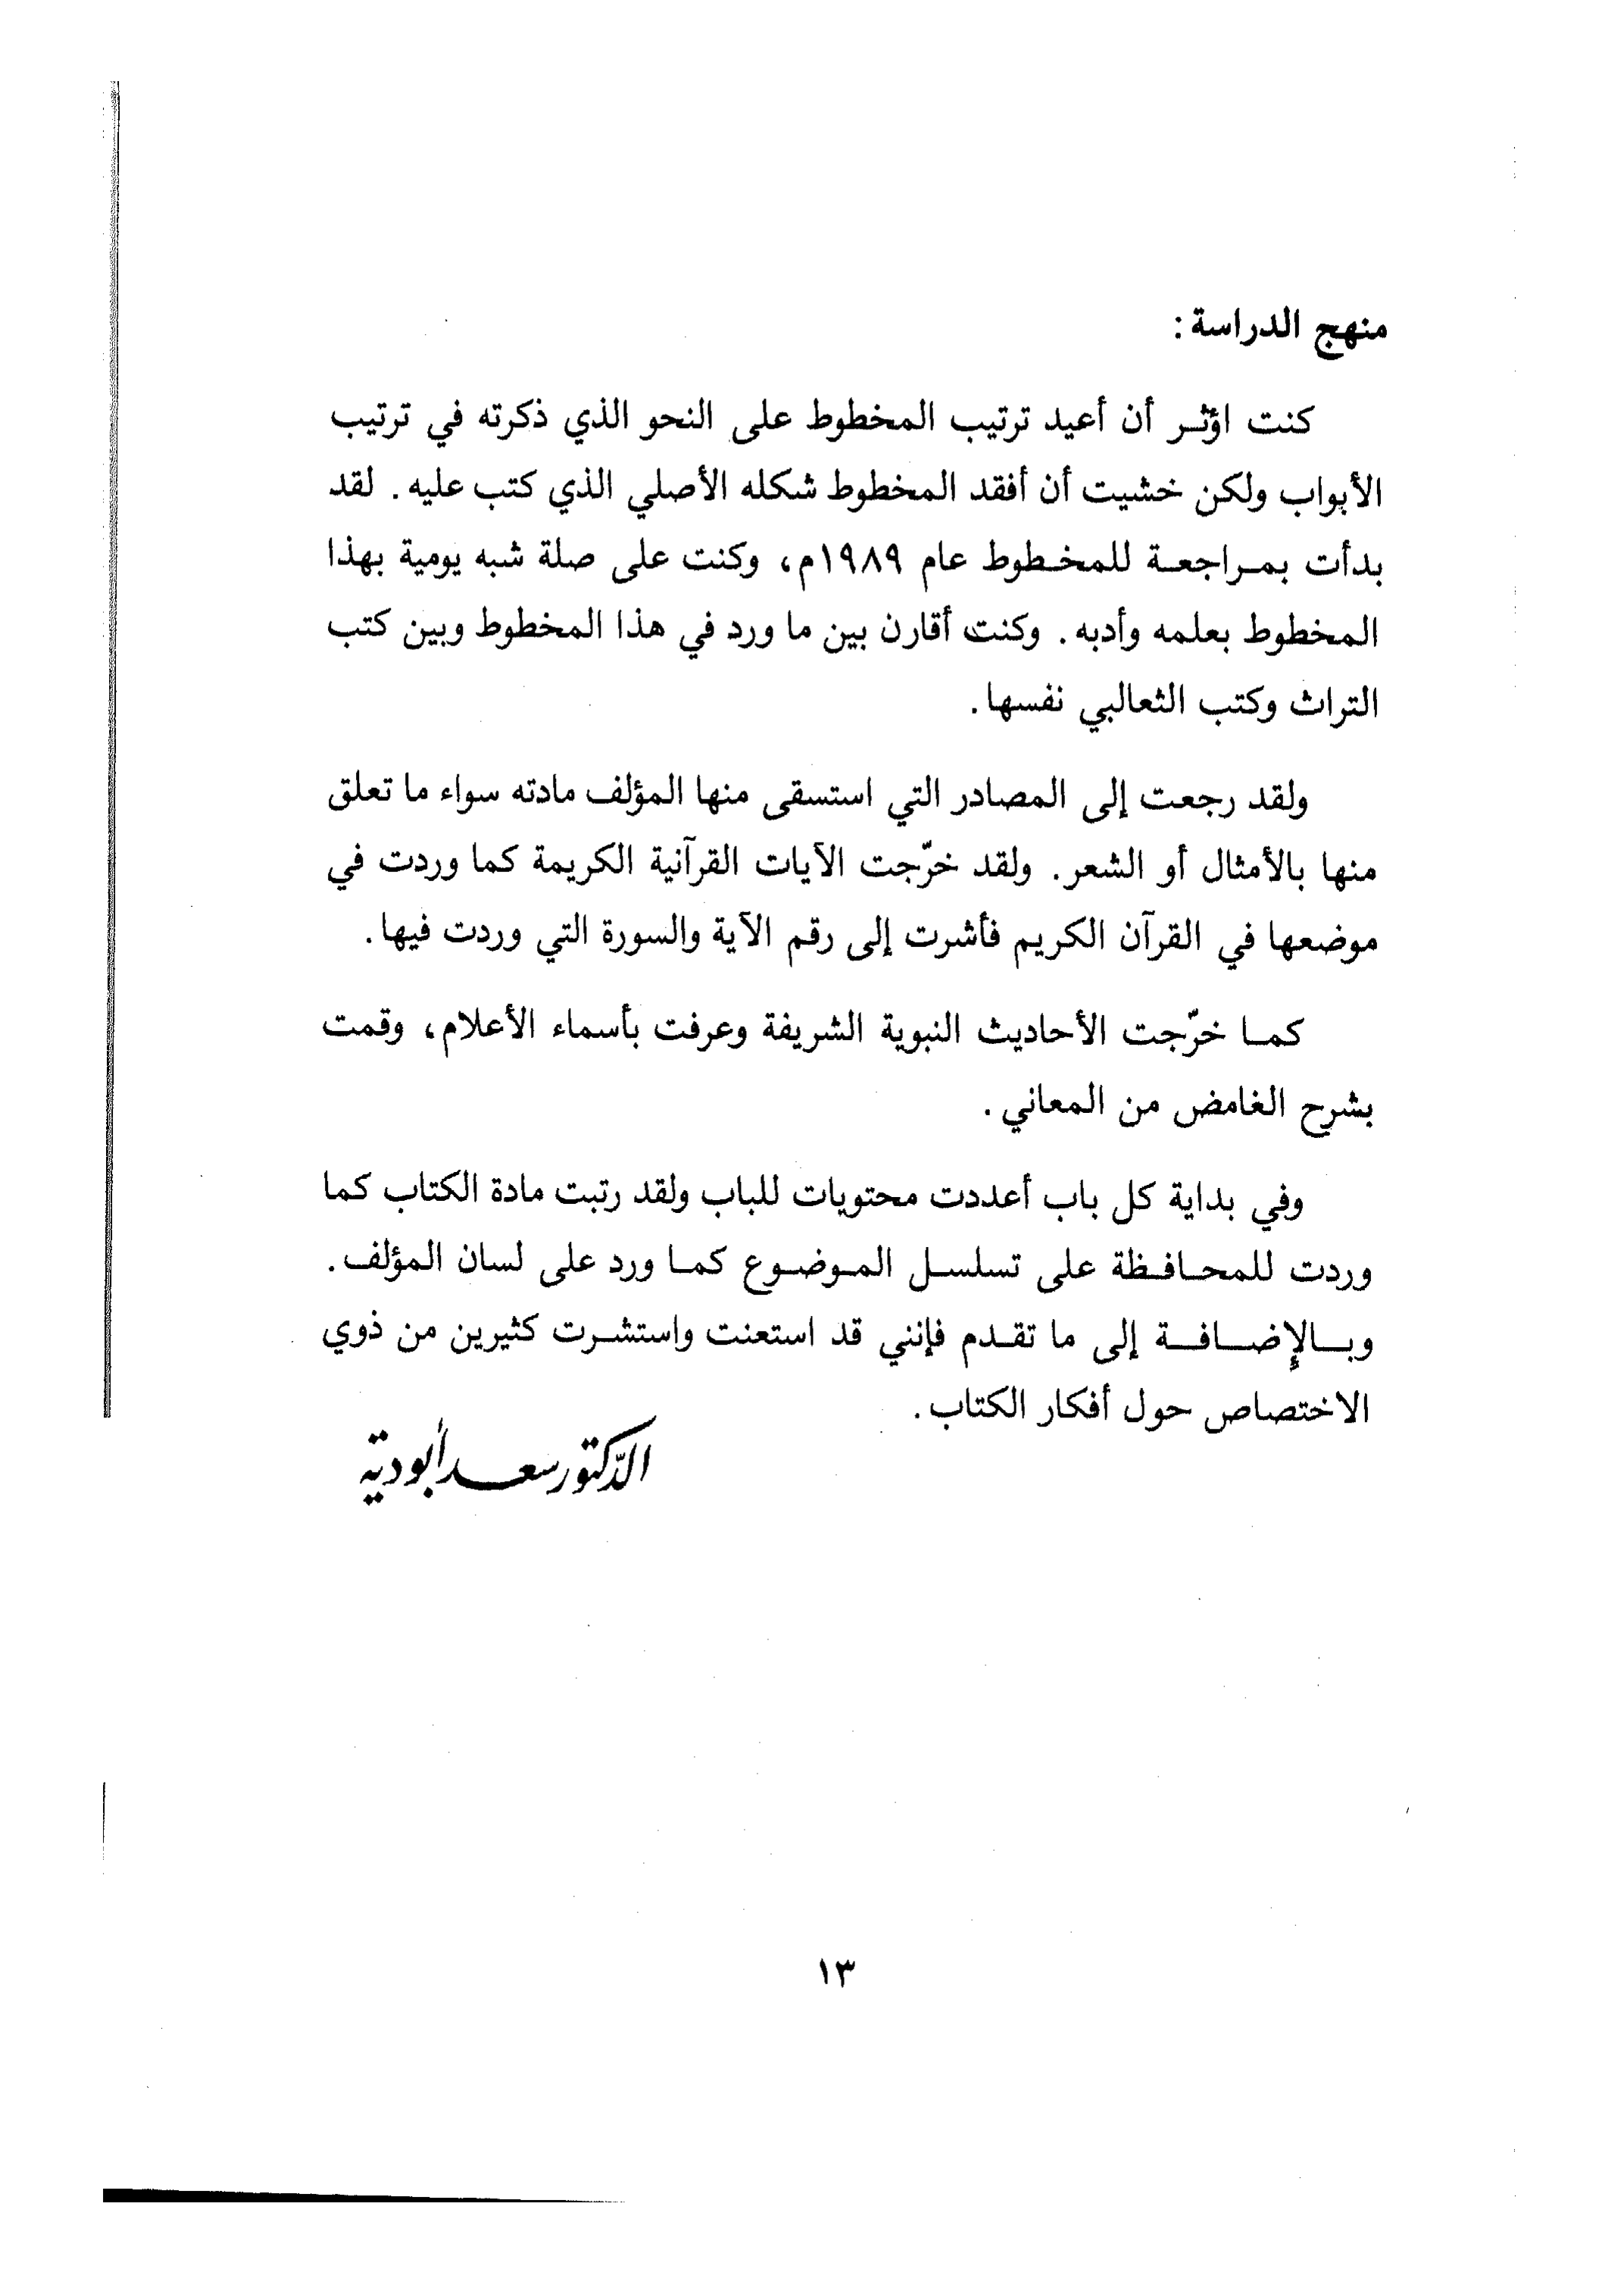 منهج الدراسة :
كنت اؤثر أن أعيد ترتيب المخطوط على النحو الذي ذكرته في ترتيب
الأبواب ولكن خشيت أن أفقد المخطوط شكله الأصلي الذي كتب عليه . لقد
بدأت بمراجعة للمخطوط عام ١٩٨٩م، وكنت على صلة شبه يومية بهذا
المخطوط بعلمه وأدبه . وكنت أقارن بين ما ورد في هذا المخطوط وبين كتب
التراث وكتب الثعالبي نفسها .
ولقد رجعت إلى المصادر التي استسقى منها المؤلف مادته سواء ما تعلق
منها بالأمثال أو الشعر . ولقد خرّجت الآيات القرآنية الكريمة كما وردت في
موضعها في القرآن الكريم فأشرت إلى رقم الآية والسورة التي وردت فيها .
كما خرّجت الأحاديث النبوية الشريفة وعرفت بأسماء الأعلام، وقمت
بشرح الغامض من المعاني .
وفي بداية كل باب أعددت محتويات للباب ولقد رتبت مادة الكتاب كما
وردت للمحافظة على تسلسل الموضوع كما ورد على لسان المؤلف .
وبالإضافة إلى ما تقدم فإنني قد استعنت واستشرت كثيرين من ذوي
الاختصاص حول أفكار الكتاب .
الدّكتور سعد أبو دية
١٣